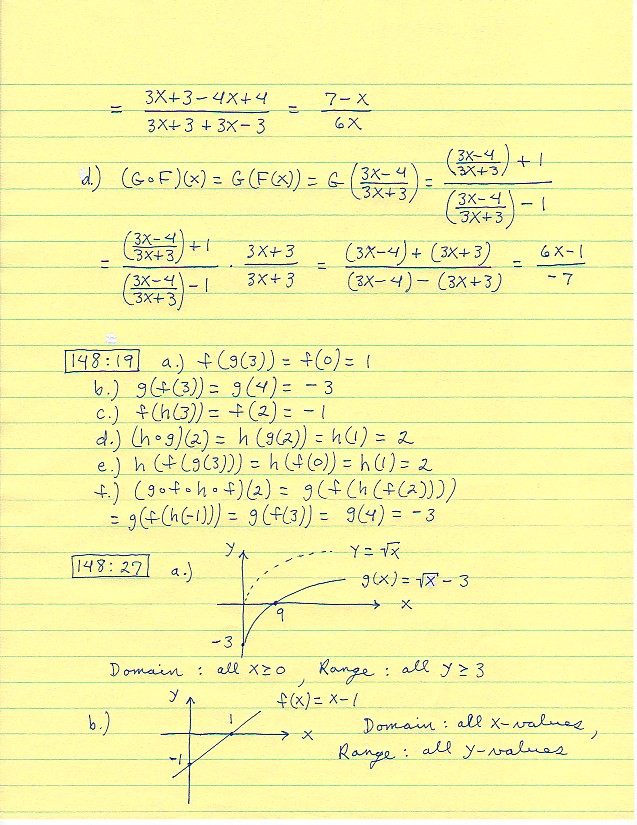 = (3x+3-4x+4)/(3x+3+3x-3) = (7-x)/(6x)
d.) (G∘F)(x) = G(F(x)) = G((3x-4)/(3x+3)) = (((3x-4)/(3x+3))+1)/(((3x-4)/(3x+3))-1)
= (((3x-4)/(3x+3))+1)/(((3x-4)/(3x+3))-1) · (3x+3)/(3x+3) = ((3x-4)+(3x+3))/((3x-4)-(3x+3)) = (6x-1)/(-7)
148:19 a.) f(g(3)) = f(0) = 1
b.) g(f(3)) = g(4) = -3
c.) f(h(3)) = f(2) = -1
d.) (h∘g)(2) = h(g(2)) = h(1) = 2
e.) h(f(g(3))) = h(f(0)) = h(1) = 2
f.) (g∘f∘h∘f)(2) = g(f(h(f(2))))
= g(f(h(-1))) = g(f(3)) = g(4) = -3
148:27 a.) y
y = √x
g(x) = √x - 3
x
9
-3
Domain : all x≥0, Range : all y≥3
b.) y
f(x) = x-1
1
x
-1
Domain : all x-values,
Range : all y-values